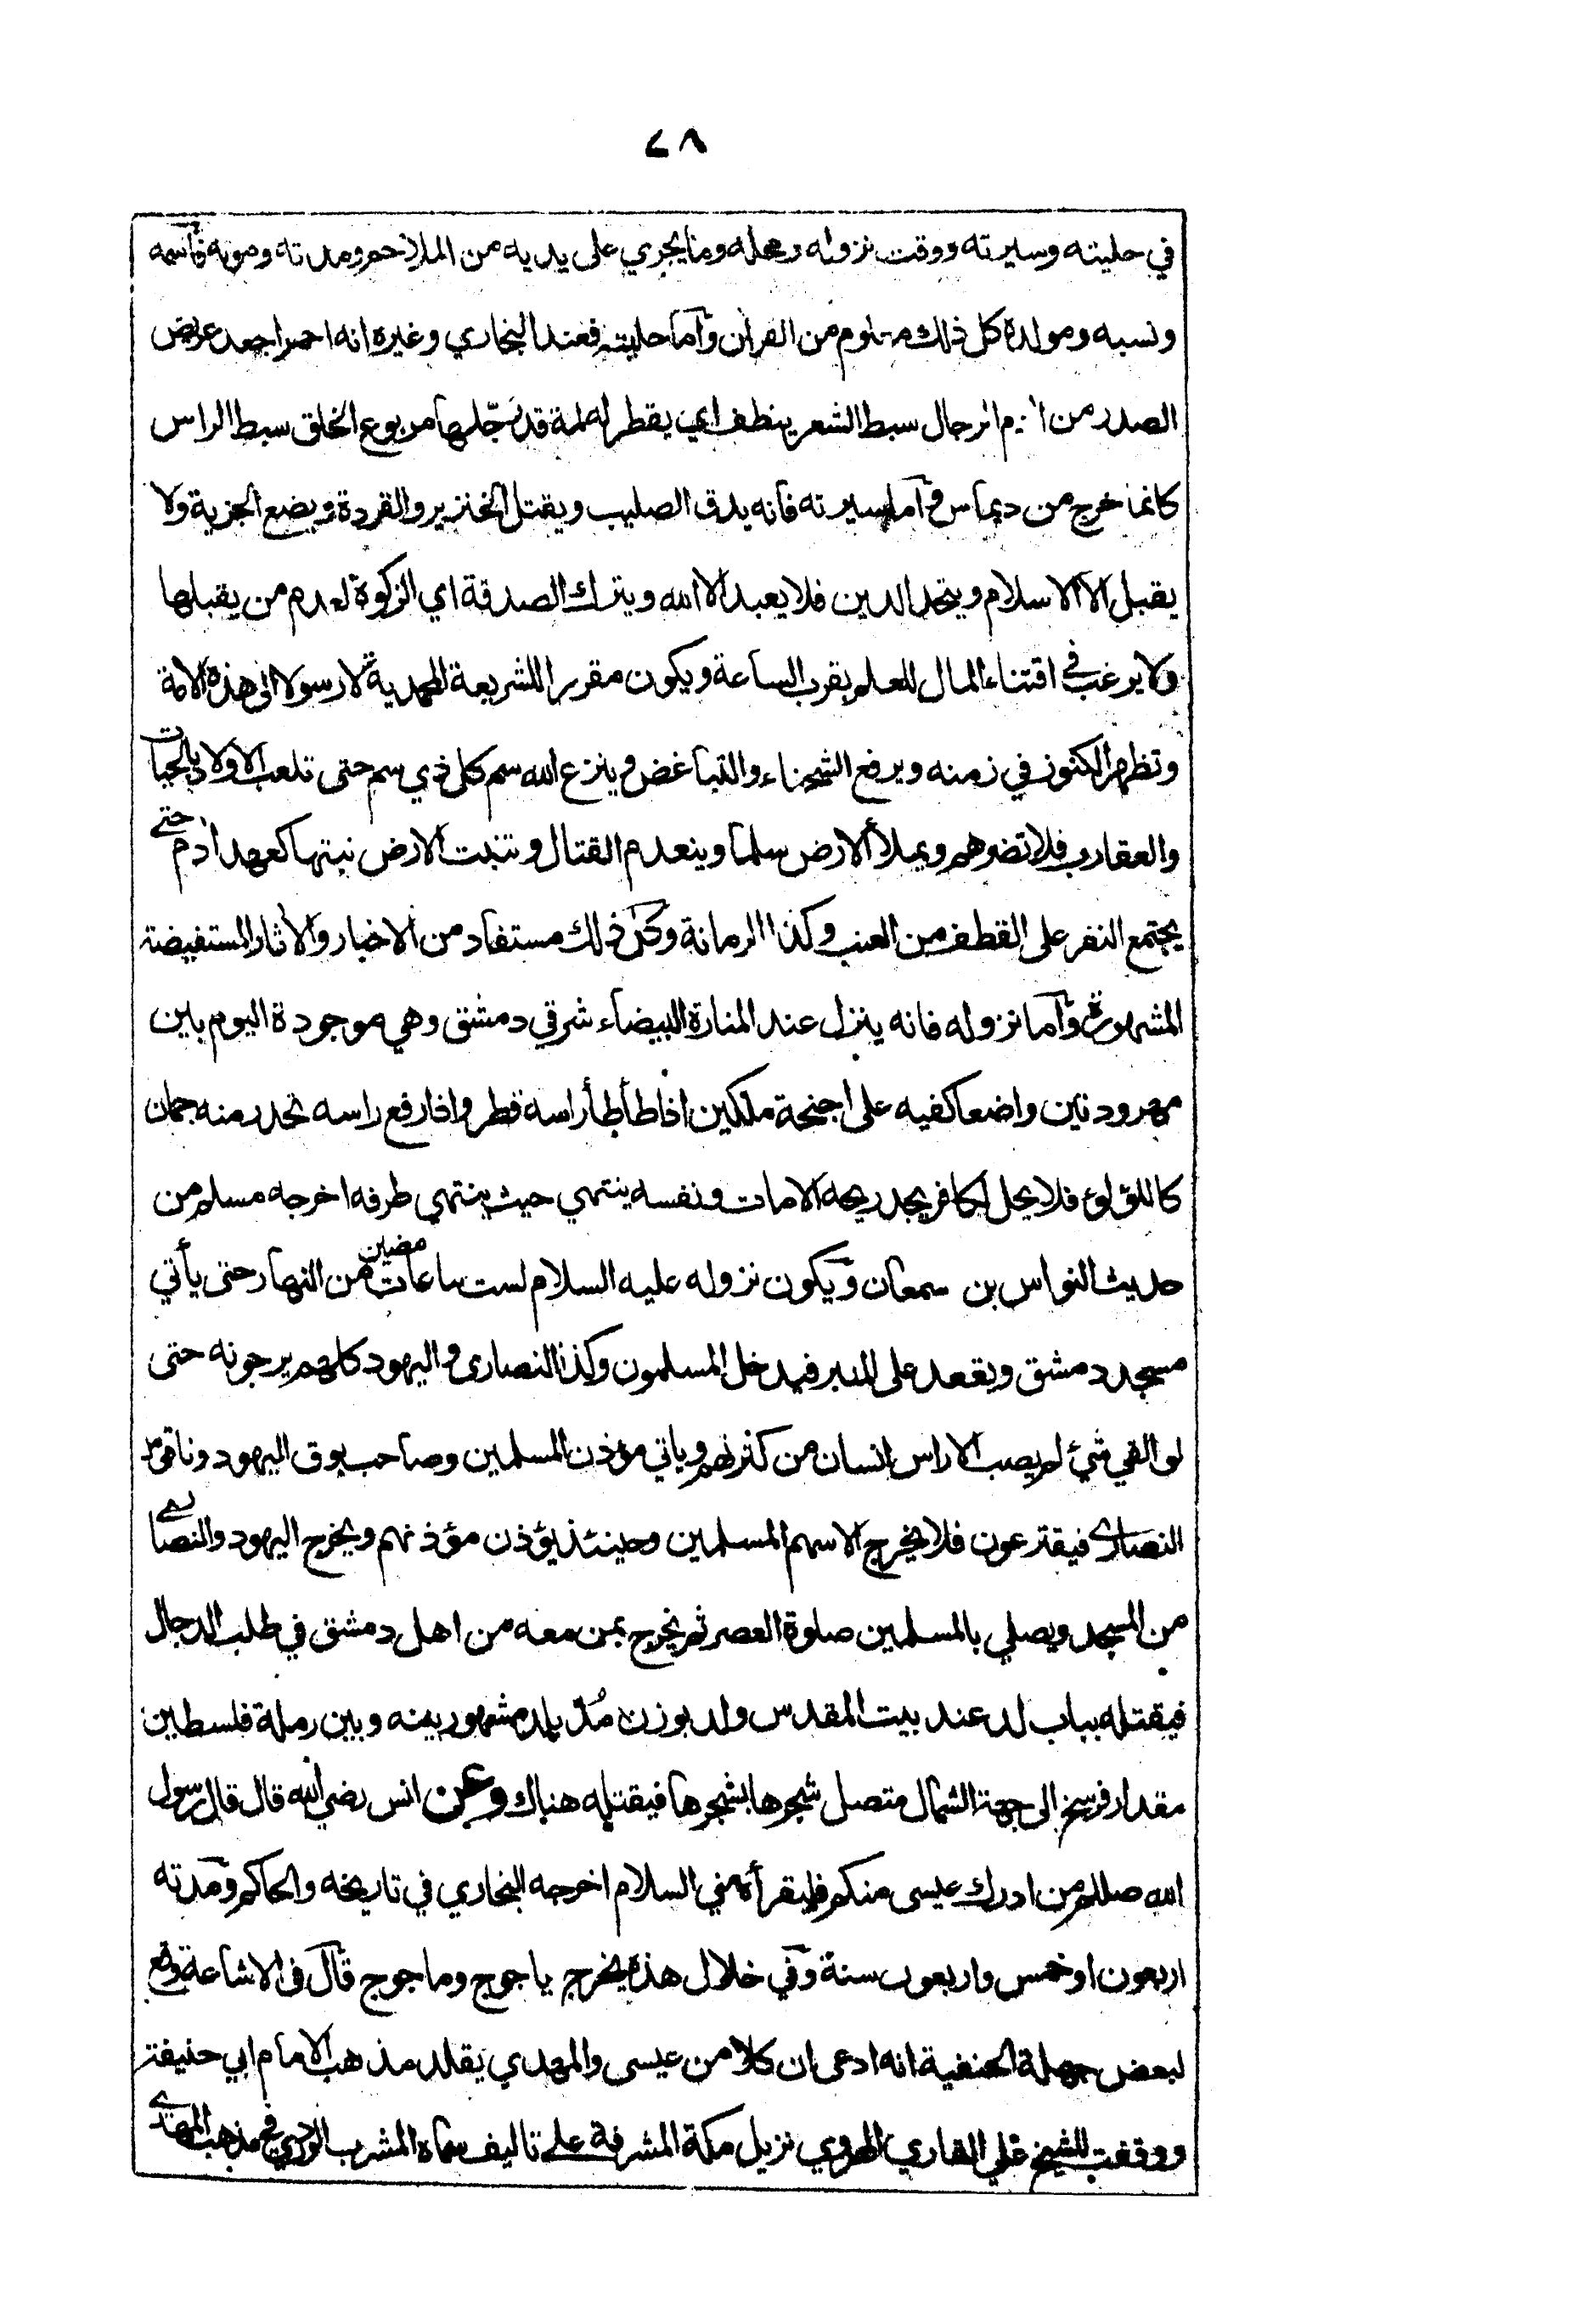 ٤٨
في حليته وسيرته ووقت نزوله ومحله وما يجري على يديه من الملاحم ومدته وموته فأسمه
ونسبه ومولده كل ذلك معلوم من القرآن وأما حليته فعند البخاري وغيره انه احمر اجعد عريض
الصدر من آدم الرجال سبط الشعر ينطف اي يقطر له لمة قد رجّلها مربوع الخلق سبط الراس
كانما خرج من ديماس وأما سيرته فانه يدق الصليب ويقتل الخنزير والقردة ويضع الجزية ولا
يقبل الا الاسلام ويتحد الدين فلا يعبد الا الله ويترك الصدقة اي الزكوة لعدم من يقبلها
ولا يرغب في اقتناء المال للعلم بقرب الساعة ويكون مقررا للشريعة المحمدية لا رسولا الى هذه الامة
وتظهر الكنوز في زمنه ويرفع الشحناء والتباغض وينزع الله سم كل ذي سم حتى تلعب الاولاد بالحيات
والعقارب فلا تضرهم ويملأ الارض سلما وينعدم القتال وتنبت الارض نبتها كعهد آدم حتى
يجتمع النفر على القطف من العنب وكذا الرمانة وكل ذلك مستفاد من الاخبار والآثار المستفيضة
المشهورة وأما نزوله فانه ينزل عند المنارة البيضاء شرقي دمشق وهي موجودة اليوم بين
مهرودتين واضعا كفيه على اجنحة ملكين اذا طأطأ راسه قطر واذا رفع راسه تحدر منه جمان
كاللؤلؤ فلا يحل لكافر يجد ريحه الا مات ونفسه ينتهي حيث ينتهي طرفه اخرجه مسلم من
حديث النواس بن سمعان ويكون نزوله عليه السلام لست ساعات مضين من النهار حتى يأتي
مسجد دمشق ويقعد على المنبر فيدخل المسلمون وكذا النصارى واليهود كلهم يرجونه حتى
لو القي شئ لم يصب الا راس انسان من كثرتهم وياتي مؤذن المسلمين وصاحب بوق اليهود وناقوس
النصارى فيقترعون فلا يخرج الا سهم المسلمين وحينئذ يؤذن مؤذنهم ويخرج اليهود والنصارى
من المسجد ويصلي بالمسلمين صلوة العصر ثم يخرج بمن معه من اهل دمشق في طلب الدجال
فيقتله بباب لد عند بيت المقدس ولد بوزن مُدّ بلد مشهور بينه وبين رملة فلسطين
مقدار فرسخ الى جهة الشمال متصل شجرها بشجرها فيقتله هناك وعن انس رضي الله قال قال رسول
الله صللم من ادرك عيسى منكم فليقرأه مني السلام اخرجه البخاري في تاريخه والحاكم ومدته
اربعون او خمس واربعون سنة وفي خلال هذه يخرج ياجوج وماجوج قال فى الاشاعة وقع
لبعض جهلة الحنفية انه ادعى ان كلا من عيسى والمهدي يقلد مذهب الامام ابي حنيفة
ووقفت للشيخ علي القاري الهروي نزيل مكة المشرفة على تاليف سماه المشرب الوردي في مذهب المهدي